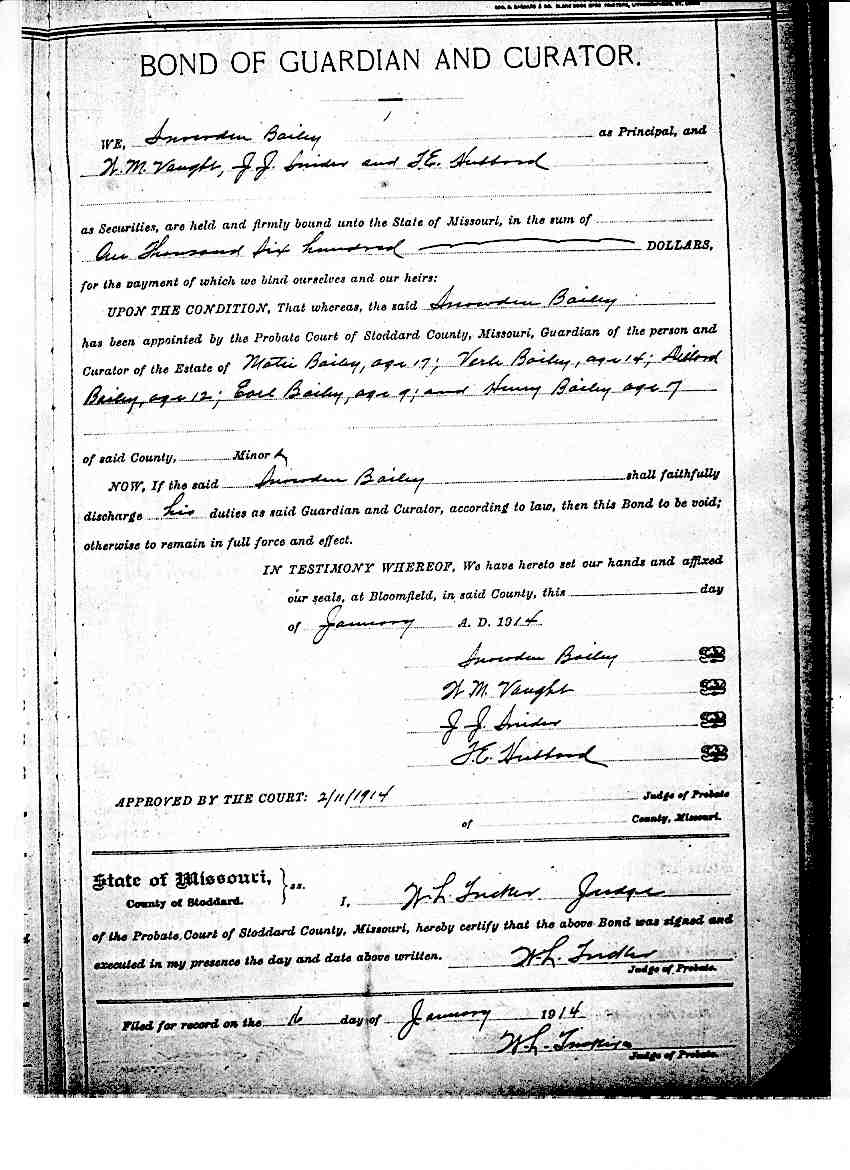 BOND OF GUARDIAN AND CURATOR.
WE, Snowden Bailey as Principal, and
W. M. Vaught, J. J. Snider and T. E. Hubbard
as Securities, are held and firmly bound unto the State of Missouri, in the sum of
One Thousand Six hundred DOLLARS,
for the payment of which we bind ourselves and our heirs:
UPON THE CONDITION, That whereas, the said Snowden Bailey
has been appointed by the Probate Court of Stoddard County, Missouri, Guardian of the person and
Curator of the Estate of Matie Bailey, age 17; Verle Bailey, age 14; Dillord
Bailey, age 12; Earl Bailey, age 9; and Henry Bailey age 7
of said County, Minors
NOW, If the said Snowden Bailey shall faithfully
discharge his duties as said Guardian and Curator, according to law, then this Bond to be void;
otherwise to remain in full force and effect.
IN TESTIMONY WHEREOF, We have hereto set our hands and affixed
our seals, at Bloomfield, in said County, this day
of January A. D. 1914
Snowden Bailey
W. M. Vaught
J. J. Snider
T. E. Hubbard
APPROVED BY THE COURT: 2/11/1914 Judge of Probate
of County, Missouri.
State of Missouri, } ss.
County of Stoddard. I, W. L. Tucker Judge
of the Probate Court of Stoddard County, Missouri, hereby certify that the above Bond was signed and
executed in my presence the day and date above written. W. L. Tucker
Judge of Probate.
Filed for record on the 16 day of January 1914
W. L. Tucker
Judge of Probate.